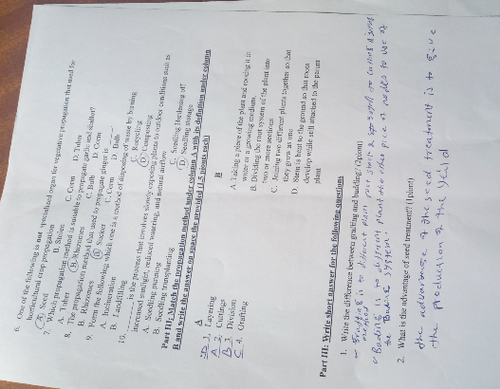 6. One of the following is not specialized organ for vegetative propagation that used for
horticultural crop propagation
A. Seed B. Stolen C. Corm D. Tuber
7. Which propagation method is suitable to propagate garlic and shallot?
A. Tuber B. Rhizomes C. Bulb D. Corm
8. The propagation method that used to propagate ginger is
B. Rhizomes B. Sucker C. Corm D. Bulb
9. Form the following which one is a method of disposing of waste by burning
A. Incineration C. Recycling
B. Landfilling D. Composting
10. is the process that involves slowly exposing plants to outdoor conditions such as
increased sunlight, reduced watering, and natural airflow
A. Seedling pruning C. Seedling Hardening off
B. Seedling transplanting D. Seedling storage
Part III: Match the propagation method under column A with its definition under column
B and write the answer on space the provided (1.5 points each)
A B
D 1. Layering A. Taking a piece of the plant and rooting it in
water or a growing medium.
A 2. Cuttings B. Dividing the root system of the plant into
two or more sections
B 3. Division C. Joining two different plants together so that
they grow as one
C 4. Grafting D. Stem is bent to the ground so that roots
develop while still attached to the parent
plant
Part III: Write short answer for the following questions
1. Write the difference between grafting and budding? (2point)
is to different plant
method
is to different plant the other
the system
2. What is the advantage of seed treatment? (1point)
the advantage of the seed treatment is to give
the production of the yeild